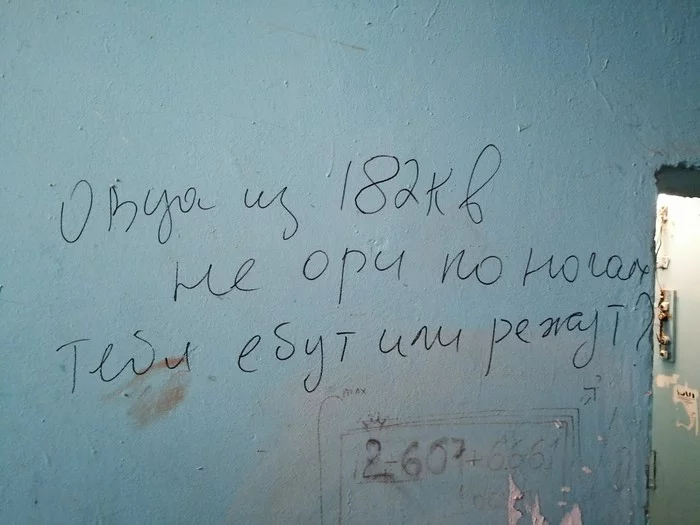 Овца из 182кв
не ори по ногам
тебя ебут или режут?
max
2-607+6661